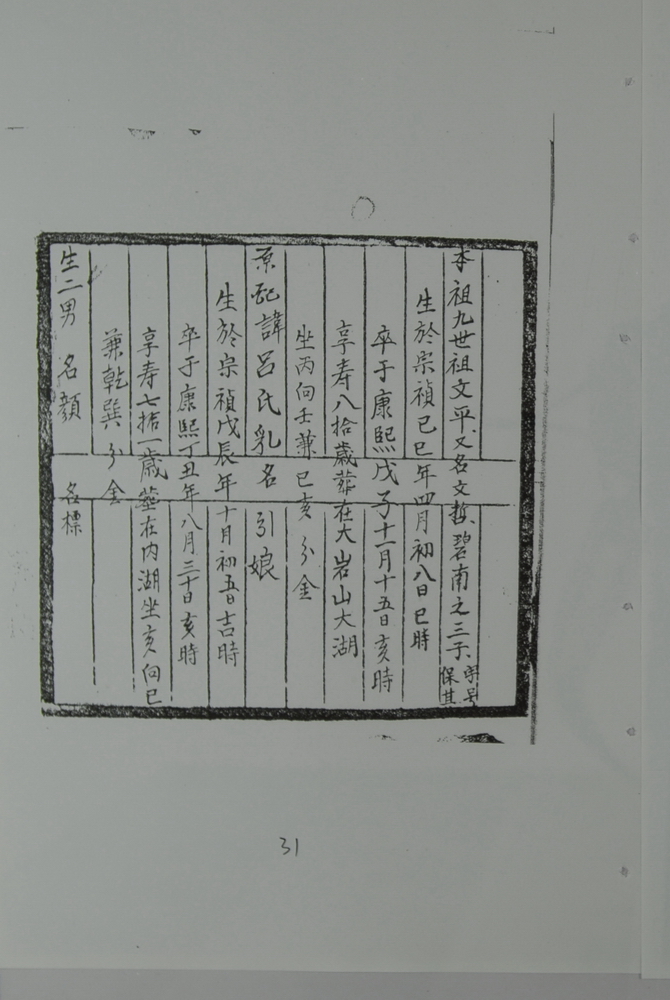 本祖九世祖文平、又名文哲、碧南之三子、字号保其
生於宗禎己巳年四月初八日巳時
卒于康熙戊子十一月十五日亥時
享寿八拾歲葬在大岩山大湖
坐丙向壬兼巳亥分金
原配諱呂氏乳名引娘
生於宗禎戊辰年十月初五日吉時
卒于康熙丁丑年八月三十日亥時
享寿七拾一歲葬在内湖坐亥向巳
兼乾巽分金
生二男 名顏 名標
31